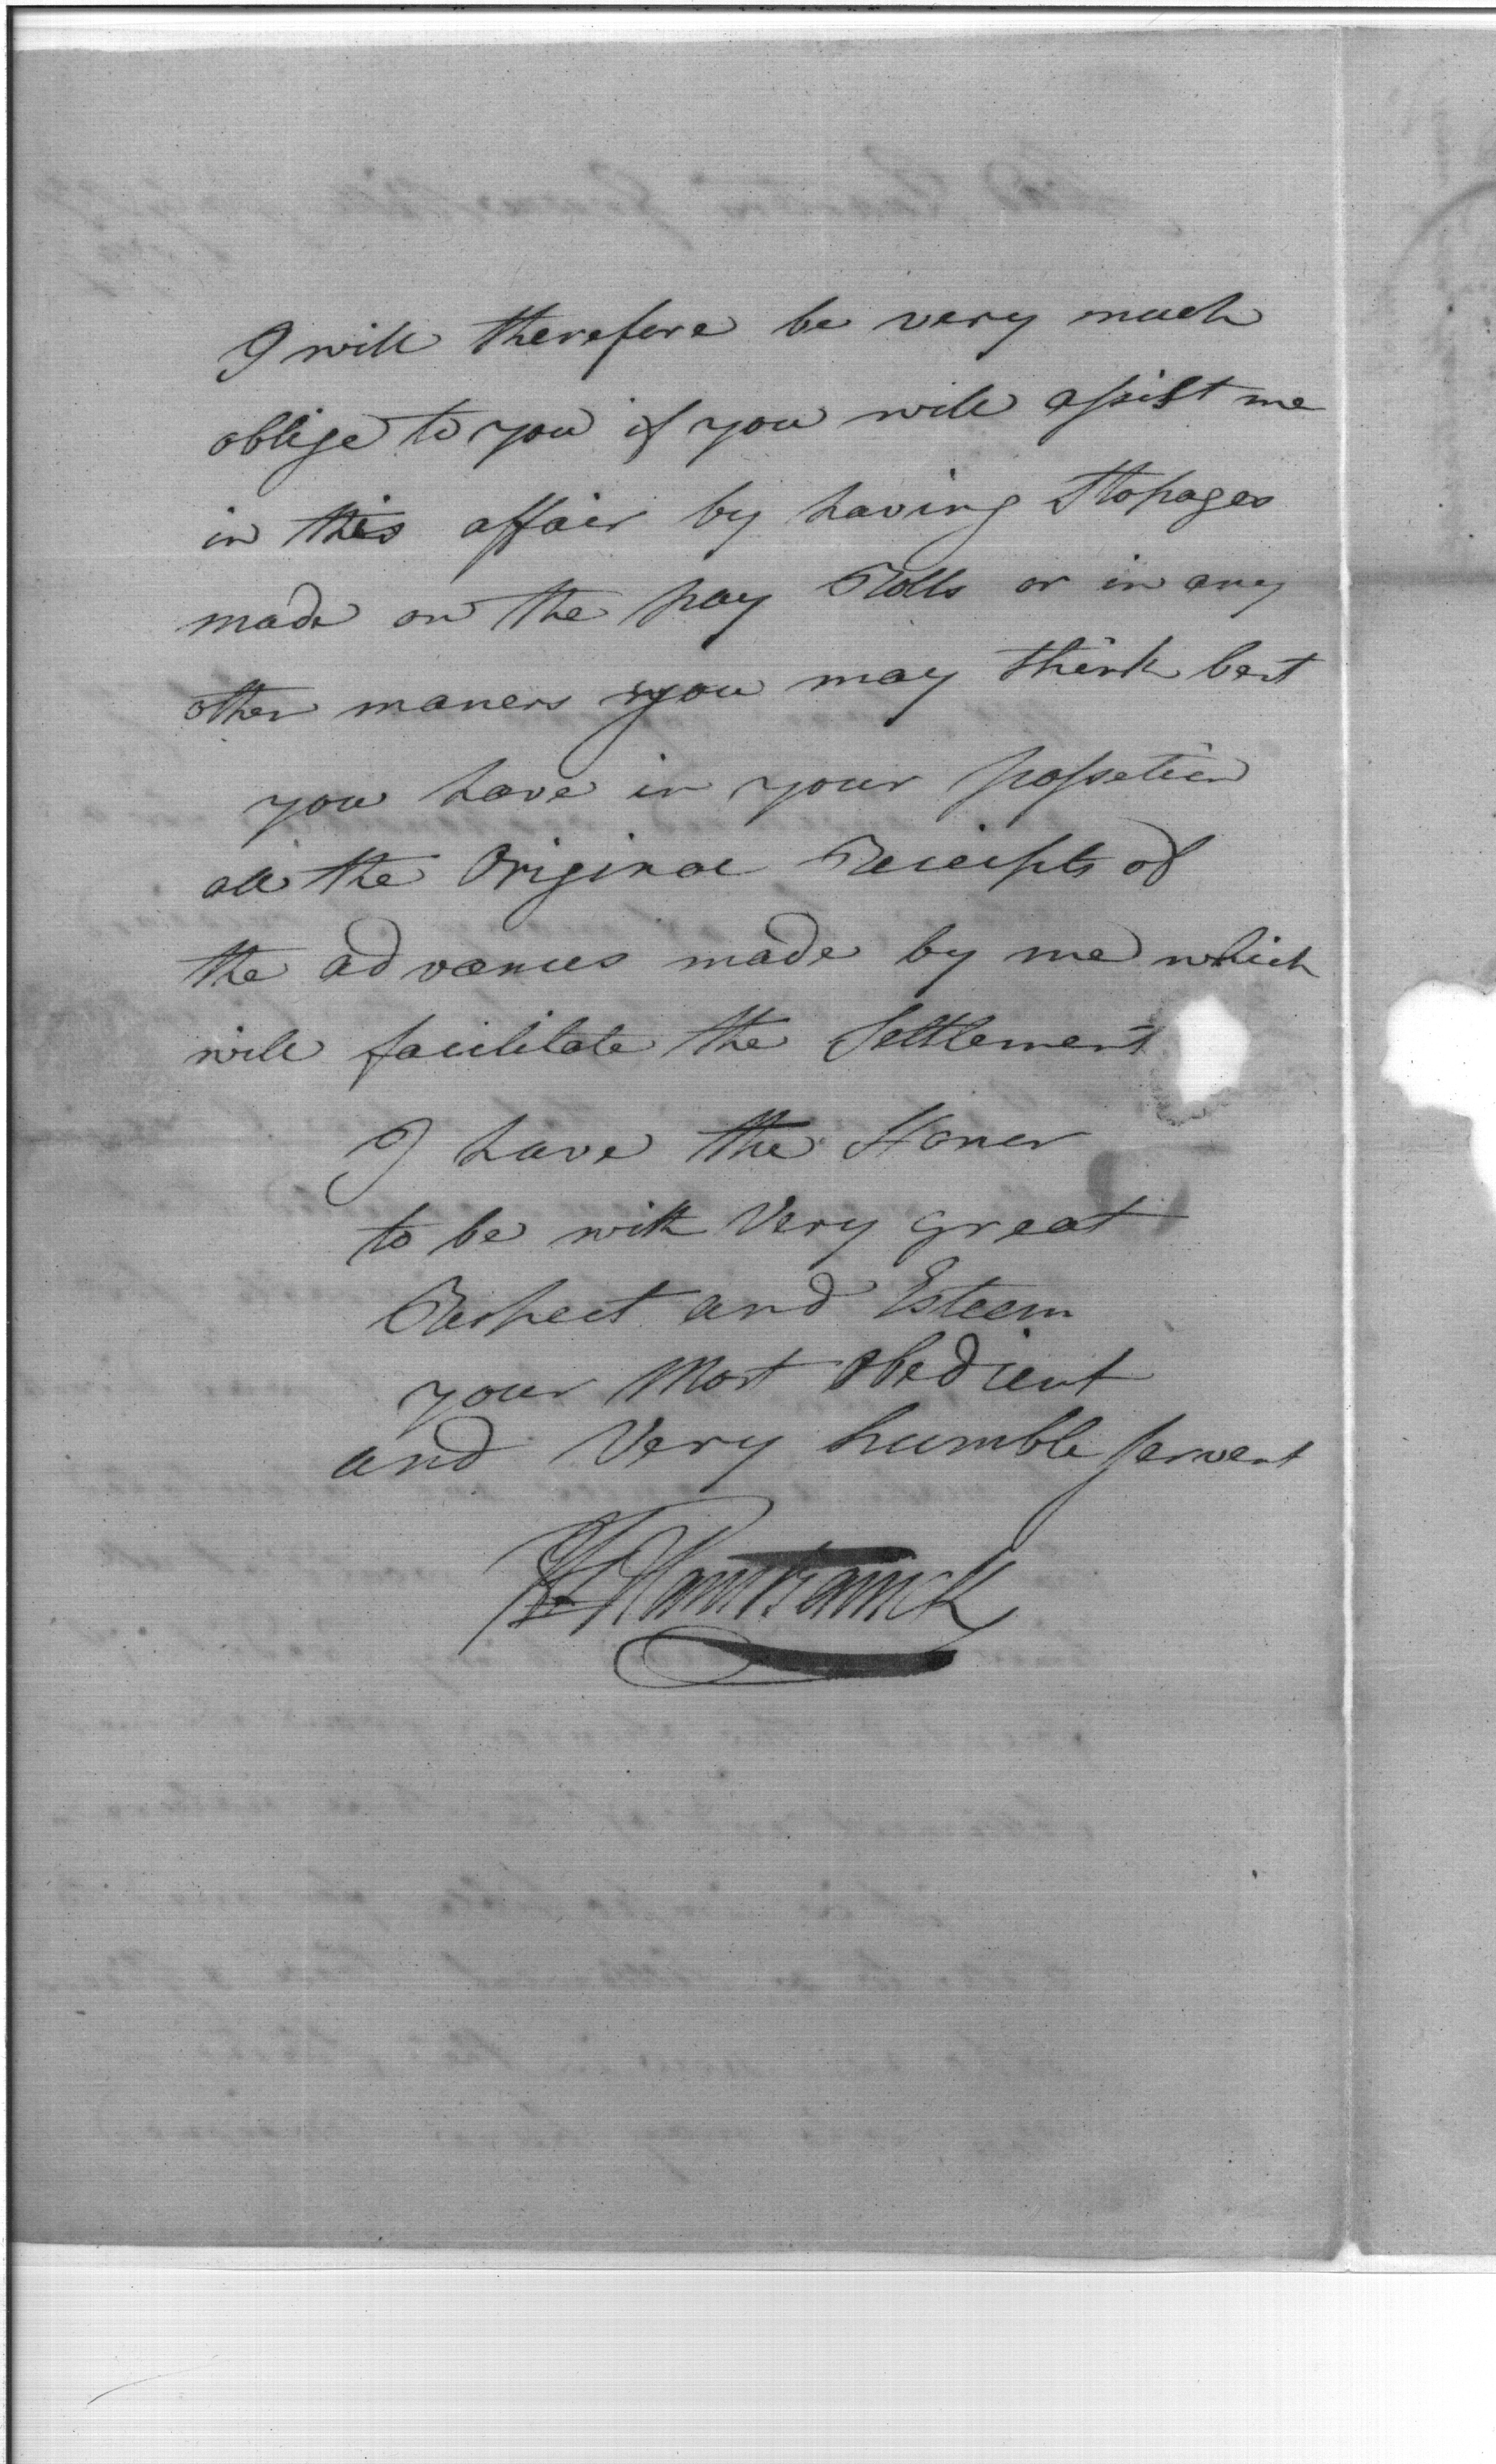 I will therefore be very much
oblige to you if you will assist me
in this affair by having Stopages
made on the pay Rolls or in any
other maners you may think best
you have in your possetion
all the Original Receipts of
the advances made by me which
will facilitate the Settlement
I have the Honor
to be with Very great
Respect and Esteem
your Most obedient
and Very humble servent
Hamtramck